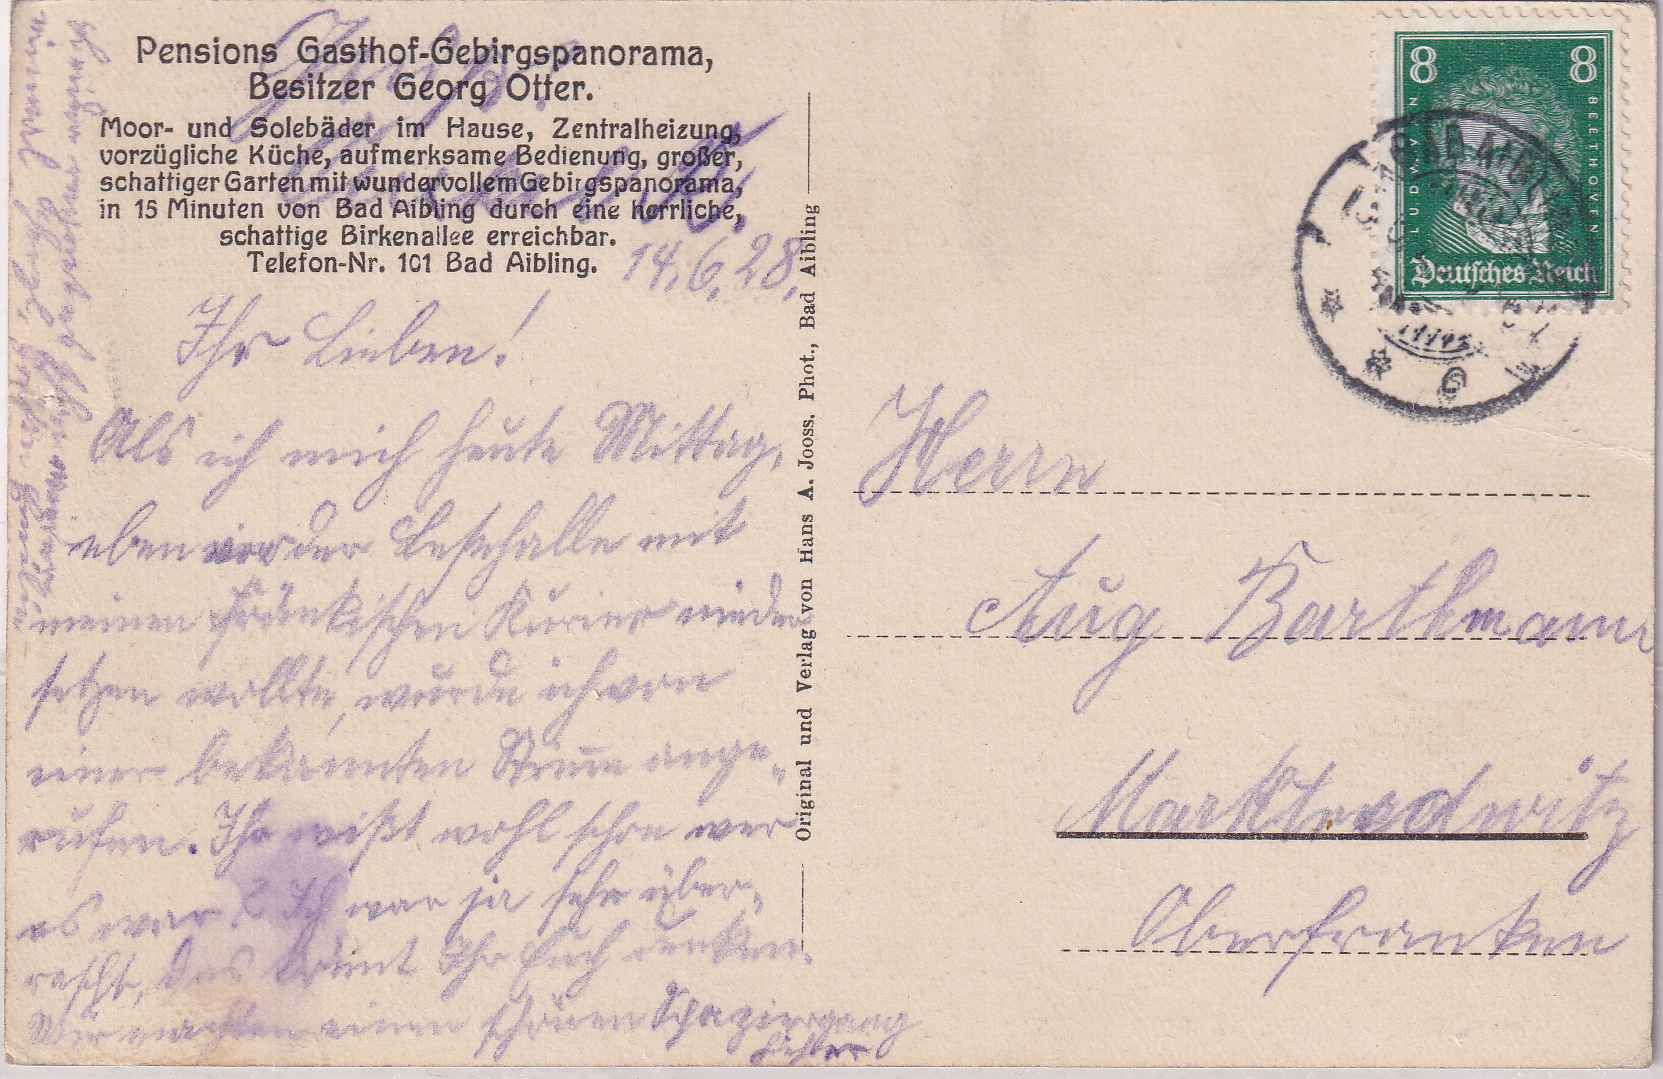 Pensions Gasthof-Gebirgspanorama,
Besitzer Georg Otter.
Moor- und Solebäder im Hause, Zentralheizung,
vorzügliche Küche, aufmerksame Bedienung, großer,
schattiger Garten mit wundervollem Gebirgspanorama,
in 15 Minuten von Bad Aibling durch eine herrliche,
schattige Birkenallee erreichbar.
Telefon-Nr. 101 Bad Aibling.
14.6.28.
Ihr Lieben!
Als ich mich heute Mittag,
eben vor der Lesehalle mit
meinen Fränkischen Kurier nieder
setzen wollte, wurde ich von
einer bekannten Stimme ange-
rufen. Ihr wißt wohl schon wer
es war? Ich war ja sehr über-
rascht, das könnt Ihr Euch denken.
Wir machten einen schönen Spaziergang
Original und Verlag von Hans A. Jooss. Phot., Bad Aibling
8 8
LUDWIG VAN BEETHOVEN
Deutsches Reich
BAD AIBLING
Herrn
Aug Barthmann
Marktredwitz
Oberfranken